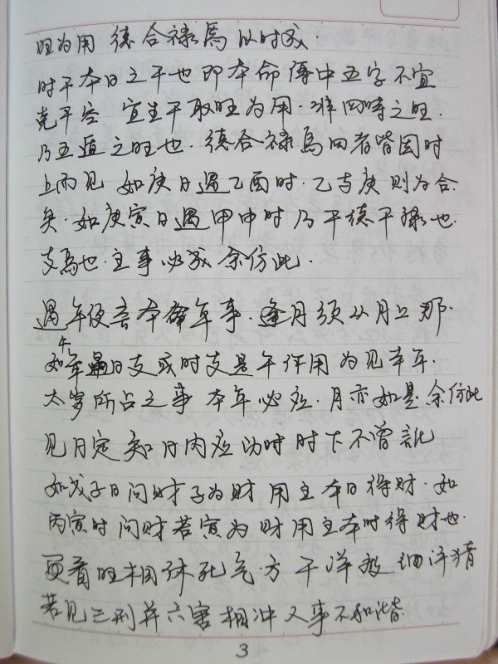 旺为用 德合禄马以时成.
时干本日之干也 即本命傳中五字 不宜
克平容 宜生干 取旺为用. 准四時之旺.
乃五道之旺也. 德合禄马四者皆因时
上而见 如庚日遇乙酉时. 乙与庚 则为合
矣. 如庚寅日遇甲申时 乃干德干禄也.
支马也. 主事必成 余仿此.
遇年便言本年事. 逢月须从月上那.
如午年日支或时支是午作用 为见本年.
太岁所占之事 本年必应. 月亦如是 余仿此
见日定知日内应 时时下不曾訛
如戊子日问财 子为财 用主本日得财. 如
丙寅时问财 若寅为财 用主本时得财也.
更看旺相休死气. 方干详细
若见三刑并六害相冲 又事不和谐
3